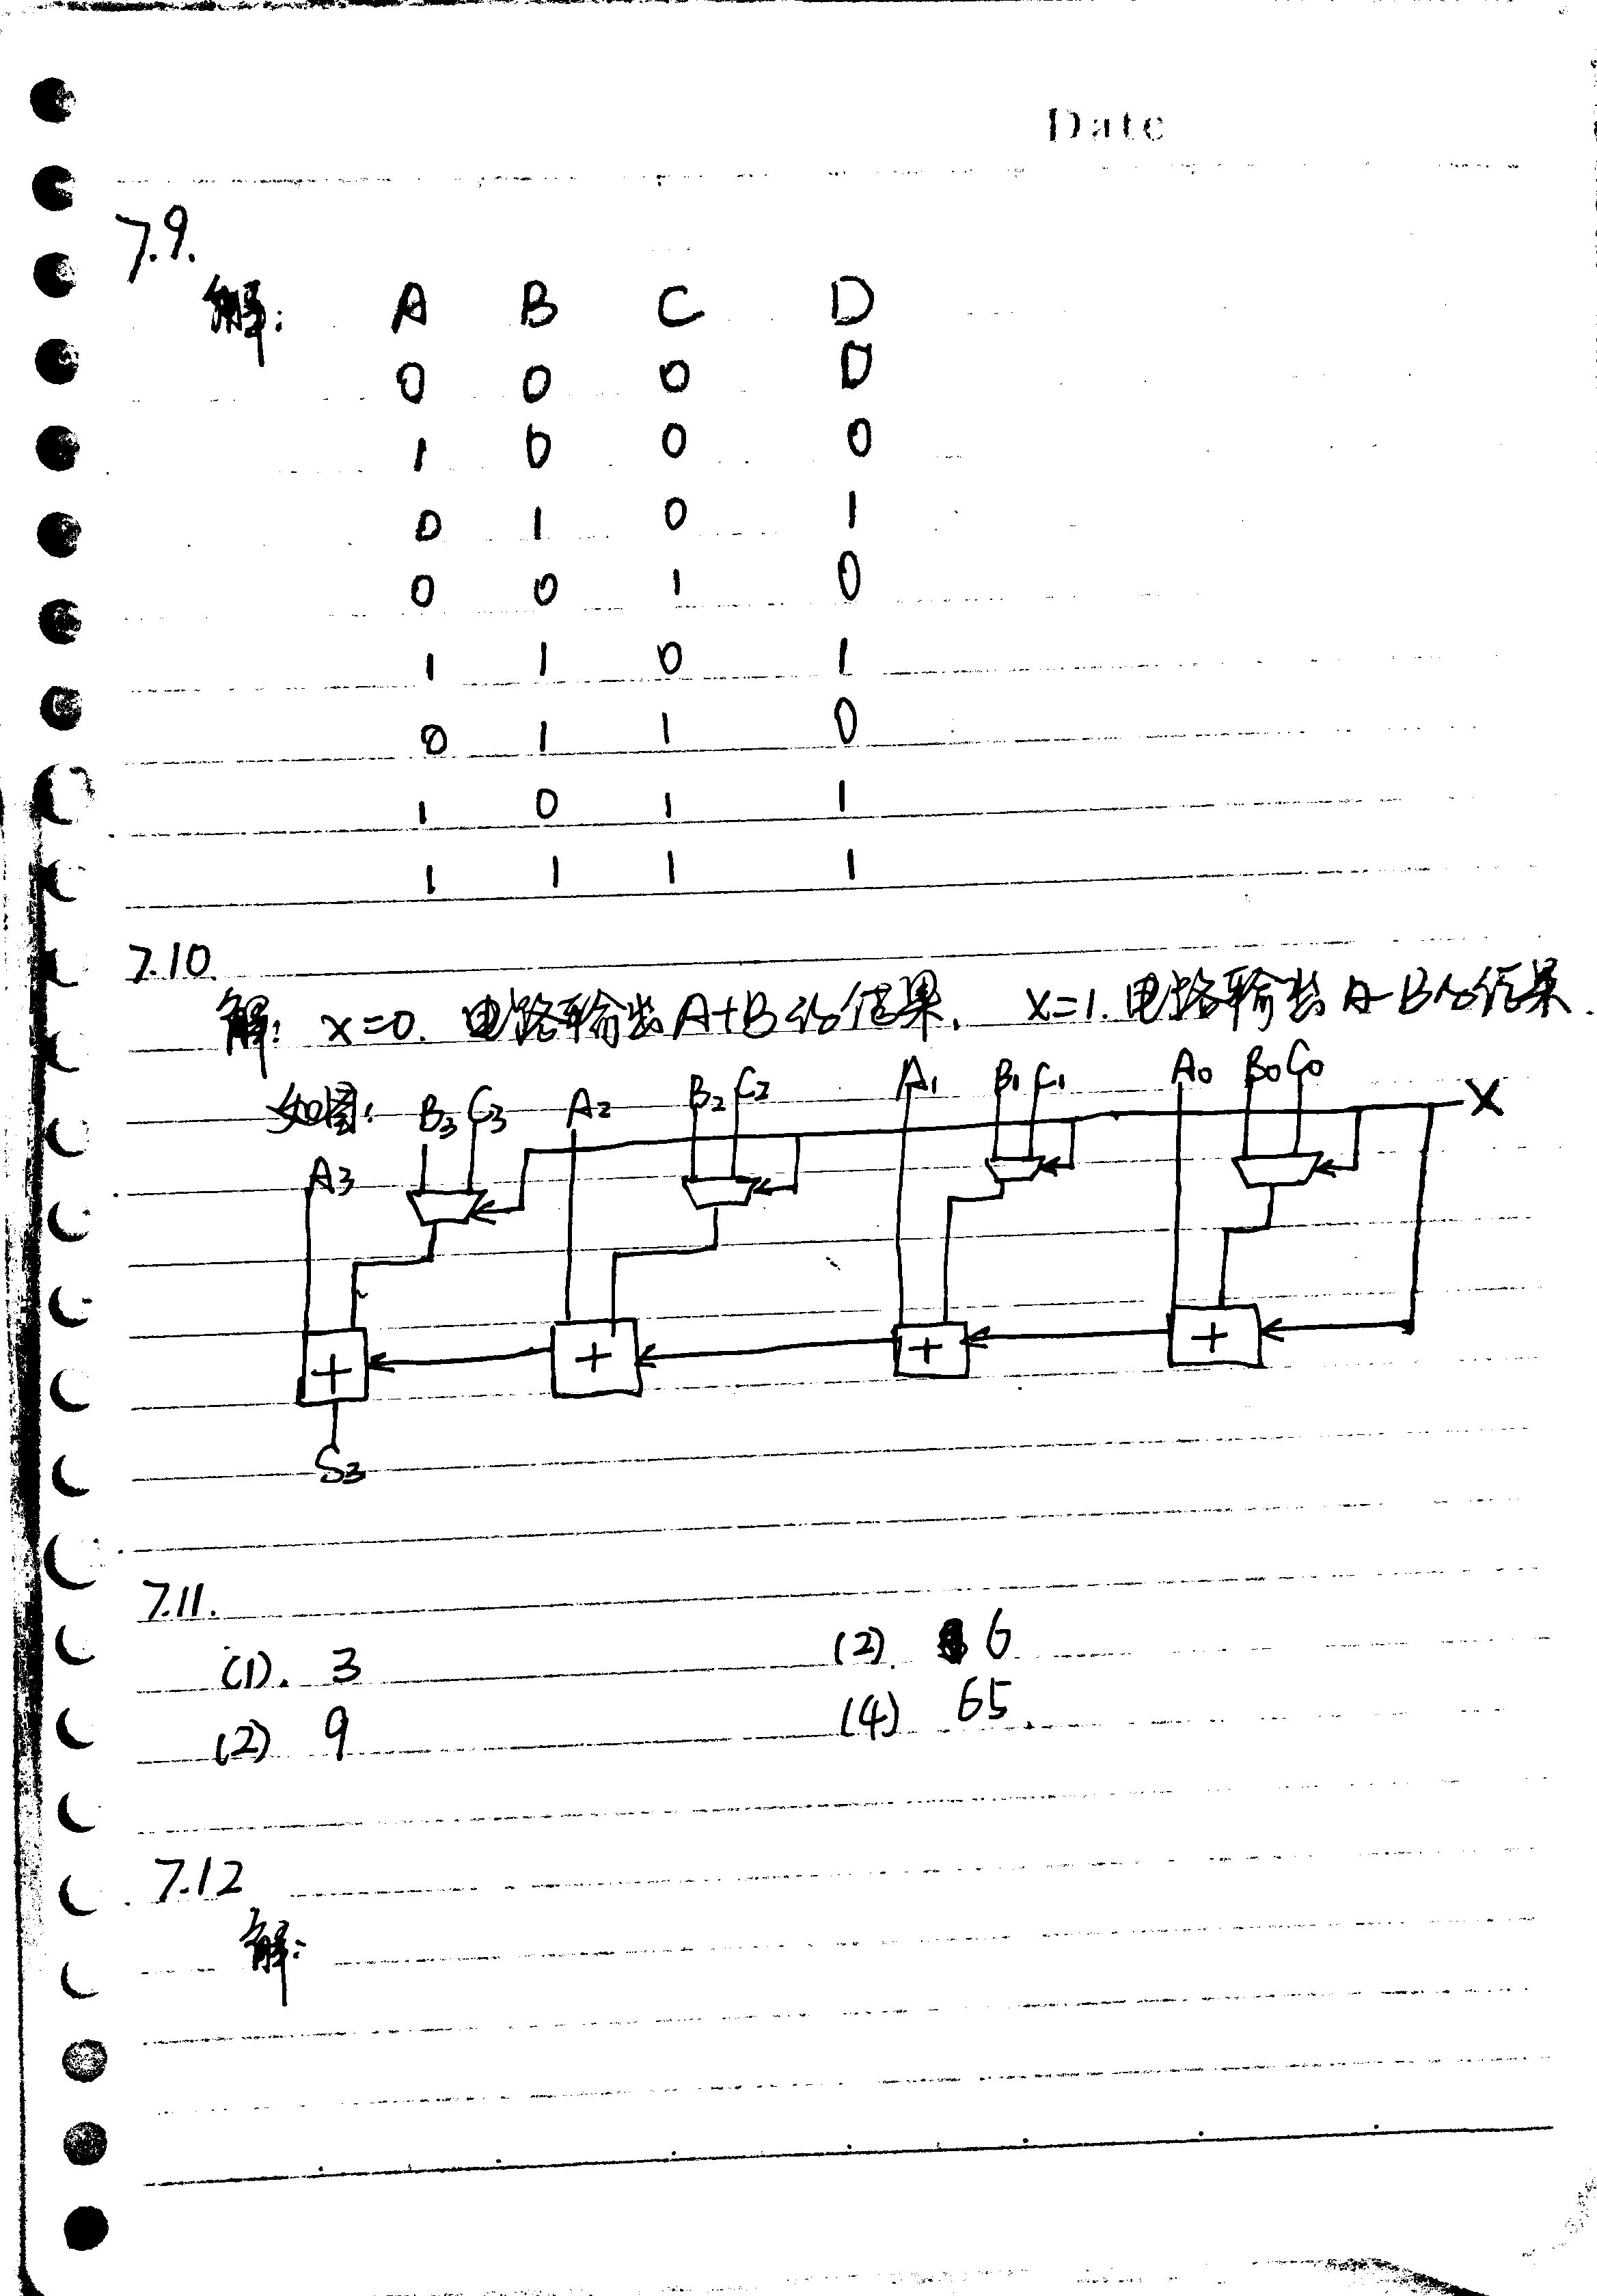 Date
7.9.
解: A B C D
0 0 0 0
1 0 0 0
0 1 0 1
0 0 1 0
1 1 0 1
0 1 1 0
1 0 1 1
1 1 1 1
7.10.
解: x=0. 电路输出A+B的结果. x=1. 电路输出A-B的结果.
如图: A3 B3 C3 A2 B2 C2 A1 B1 C1 A0 B0 C0 X
+ + + +
S3
7.11.
(1). 3 (2). 6
(2) 9 (4) 65.
7.12
解: